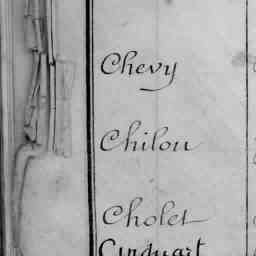 Chevy
Chilou
Cholet
Cinquart